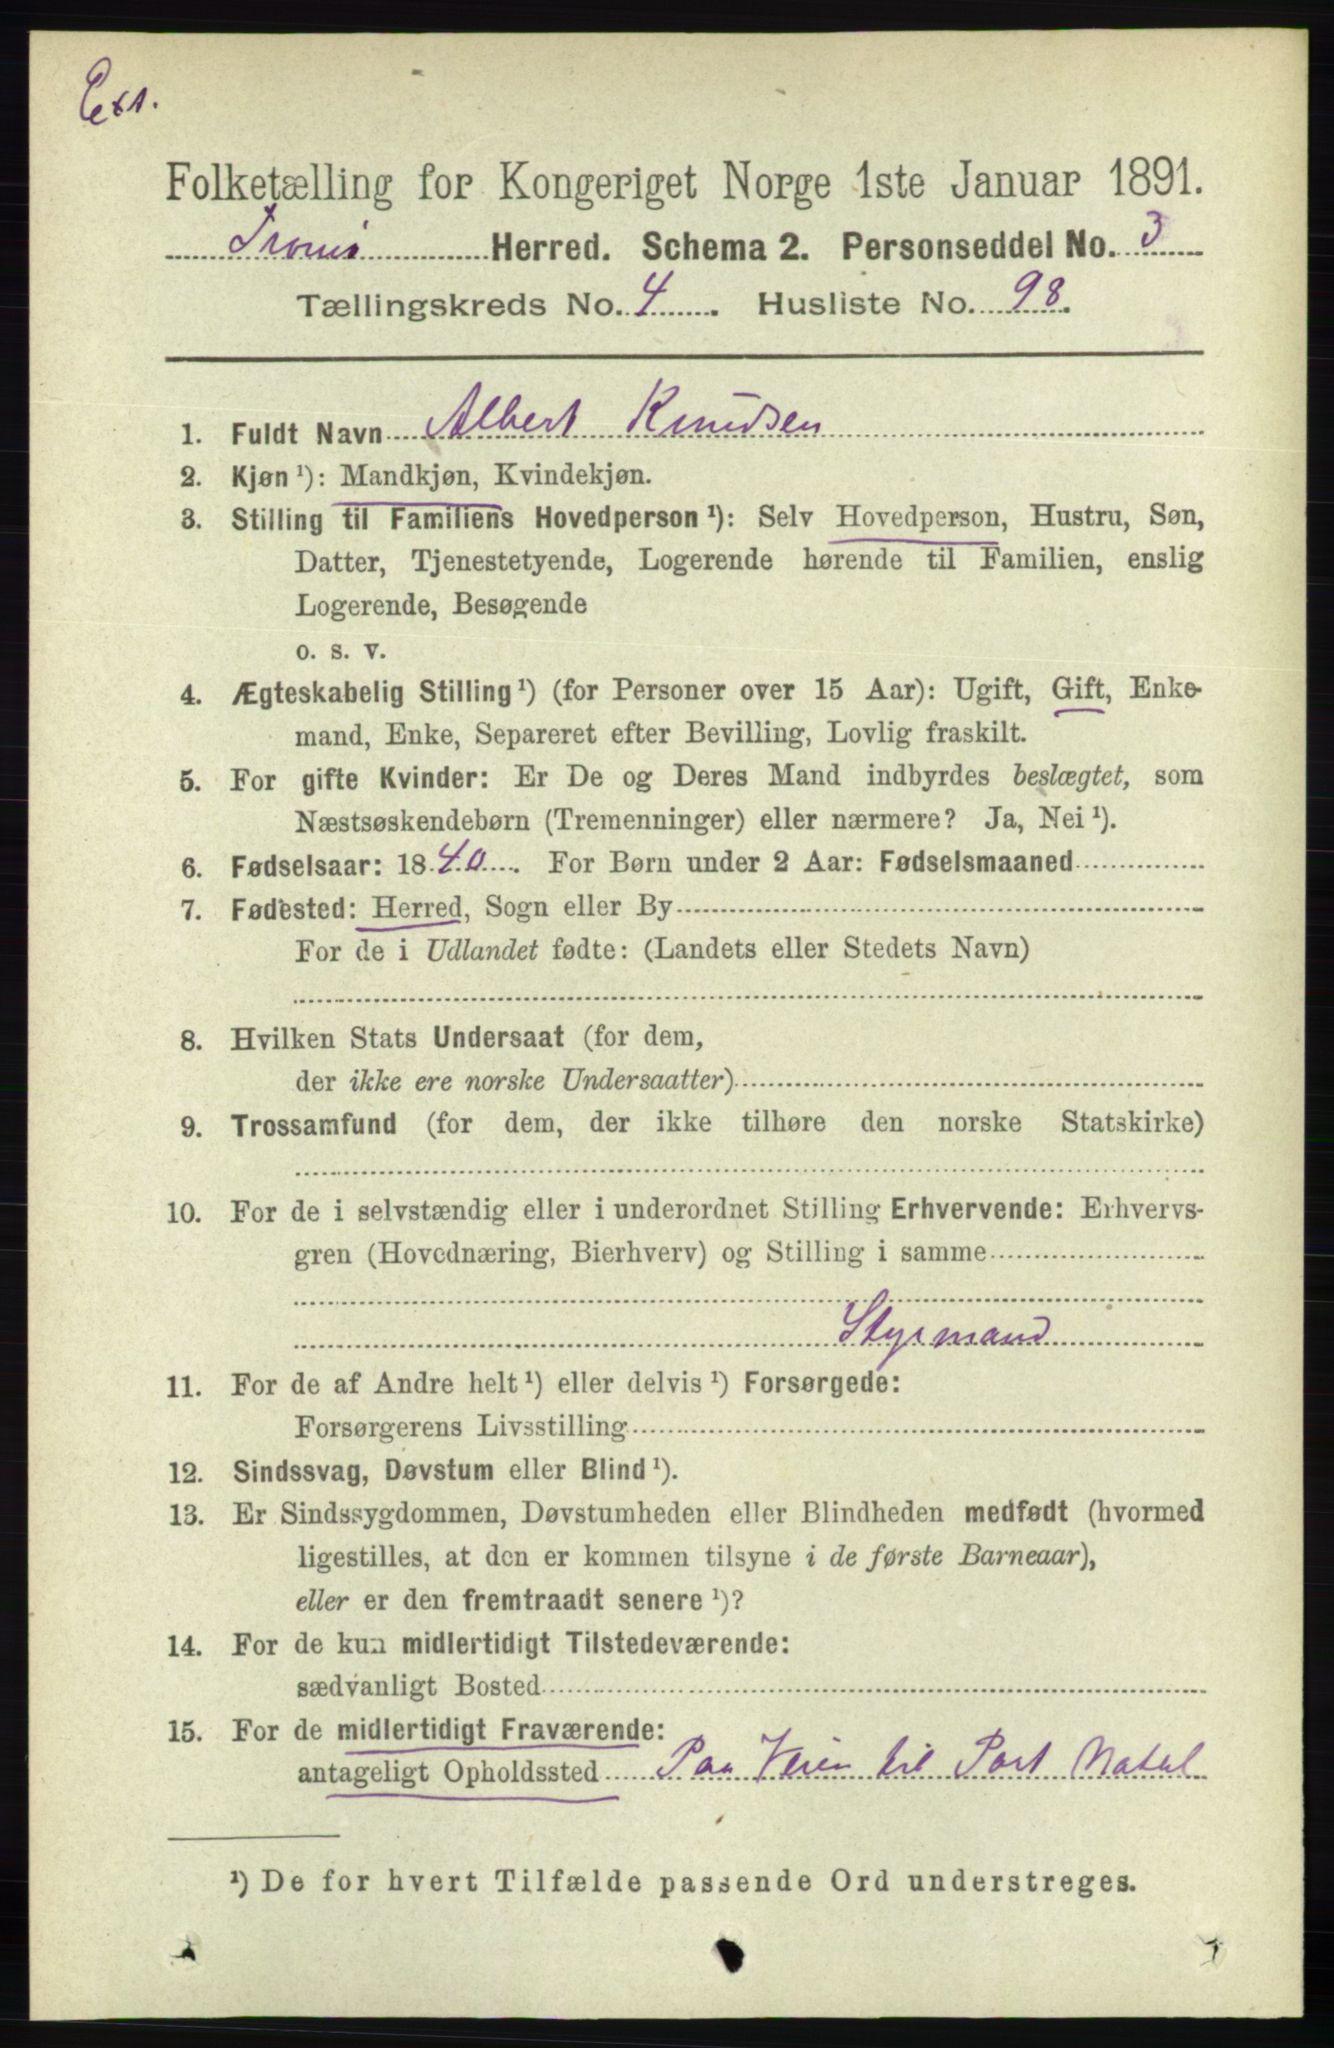 Ext.
Folketælling for Kongeriget Norge 1ste Januar 1891.
Tromø Herred. Schema 2. Personseddel No. 3
Tællingskreds No. 4. Husliste No. 98.
1. Fuldt Navn Albert Knudsen
2. Kjøn ¹): Mandkjøn, Kvindekjøn.
3. Stilling til Familiens Hovedperson ¹): Selv Hovedperson, Hustru, Søn,
Datter, Tjenestetyende, Logerende hørende til Familien, enslig
Logerende, Besøgende
o. s. v.
4. Ægteskabelig Stilling ¹) (for Personer over 15 Aar): Ugift, Gift, Enke-
mand, Enke, Separeret efter Bevilling, Lovlig fraskilt.
5. For gifte Kvinder: Er De og Deres Mand indbyrdes beslægtet, som
Næstsøskendebørn (Tremenninger) eller nærmere? Ja, Nei ¹).
6. Fødselsaar: 1840. For Børn under 2 Aar: Fødselsmaaned
7. Fødested: Herred, Sogn eller By
For de i Udlandet fødte: (Landets eller Stedets Navn)
8. Hvilken Stats Undersaat (for dem,
der ikke ere norske Undersaatter)
9. Trossamfund (for dem, der ikke tilhøre den norske Statskirke)
10. For de i selvstændig eller i underordnet Stilling Erhvervende: Erhvervs-
gren (Hovednæring, Bierhverv) og Stilling i samme
Styrmand
11. For de af Andre helt ¹) eller delvis ¹) Forsørgede:
Forsørgerens Livsstilling
12. Sindssvag, Døvstum eller Blind ¹).
13. Er Sindssygdommen, Døvstumheden eller Blindheden medfødt (hvormed
ligestilles, at den er kommen tilsyne i de første Barneaar),
eller er den fremtraadt senere ¹)?
14. For de kun midlertidigt Tilstedeværende:
sædvanligt Bosted
15. For de midlertidigt Fraværende:
antageligt Opholdssted Paa Veien til Port Natal
¹) De for hvert Tilfælde passende Ord understreges.